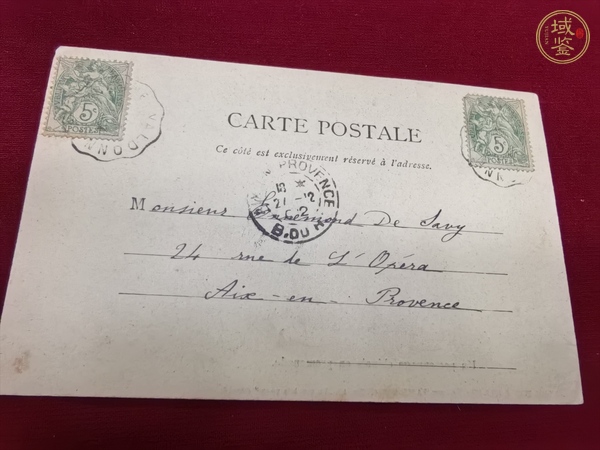 域鉴
5c
POSTES
VALDONN
5c
CARTE POSTALE
Ce côté est exclusivement réservé à l'adresse.
PROVENCE
B. DU R.
Monsieur Ensemond De Savy
24 rue de L'Opéra
Aix-en-Provence